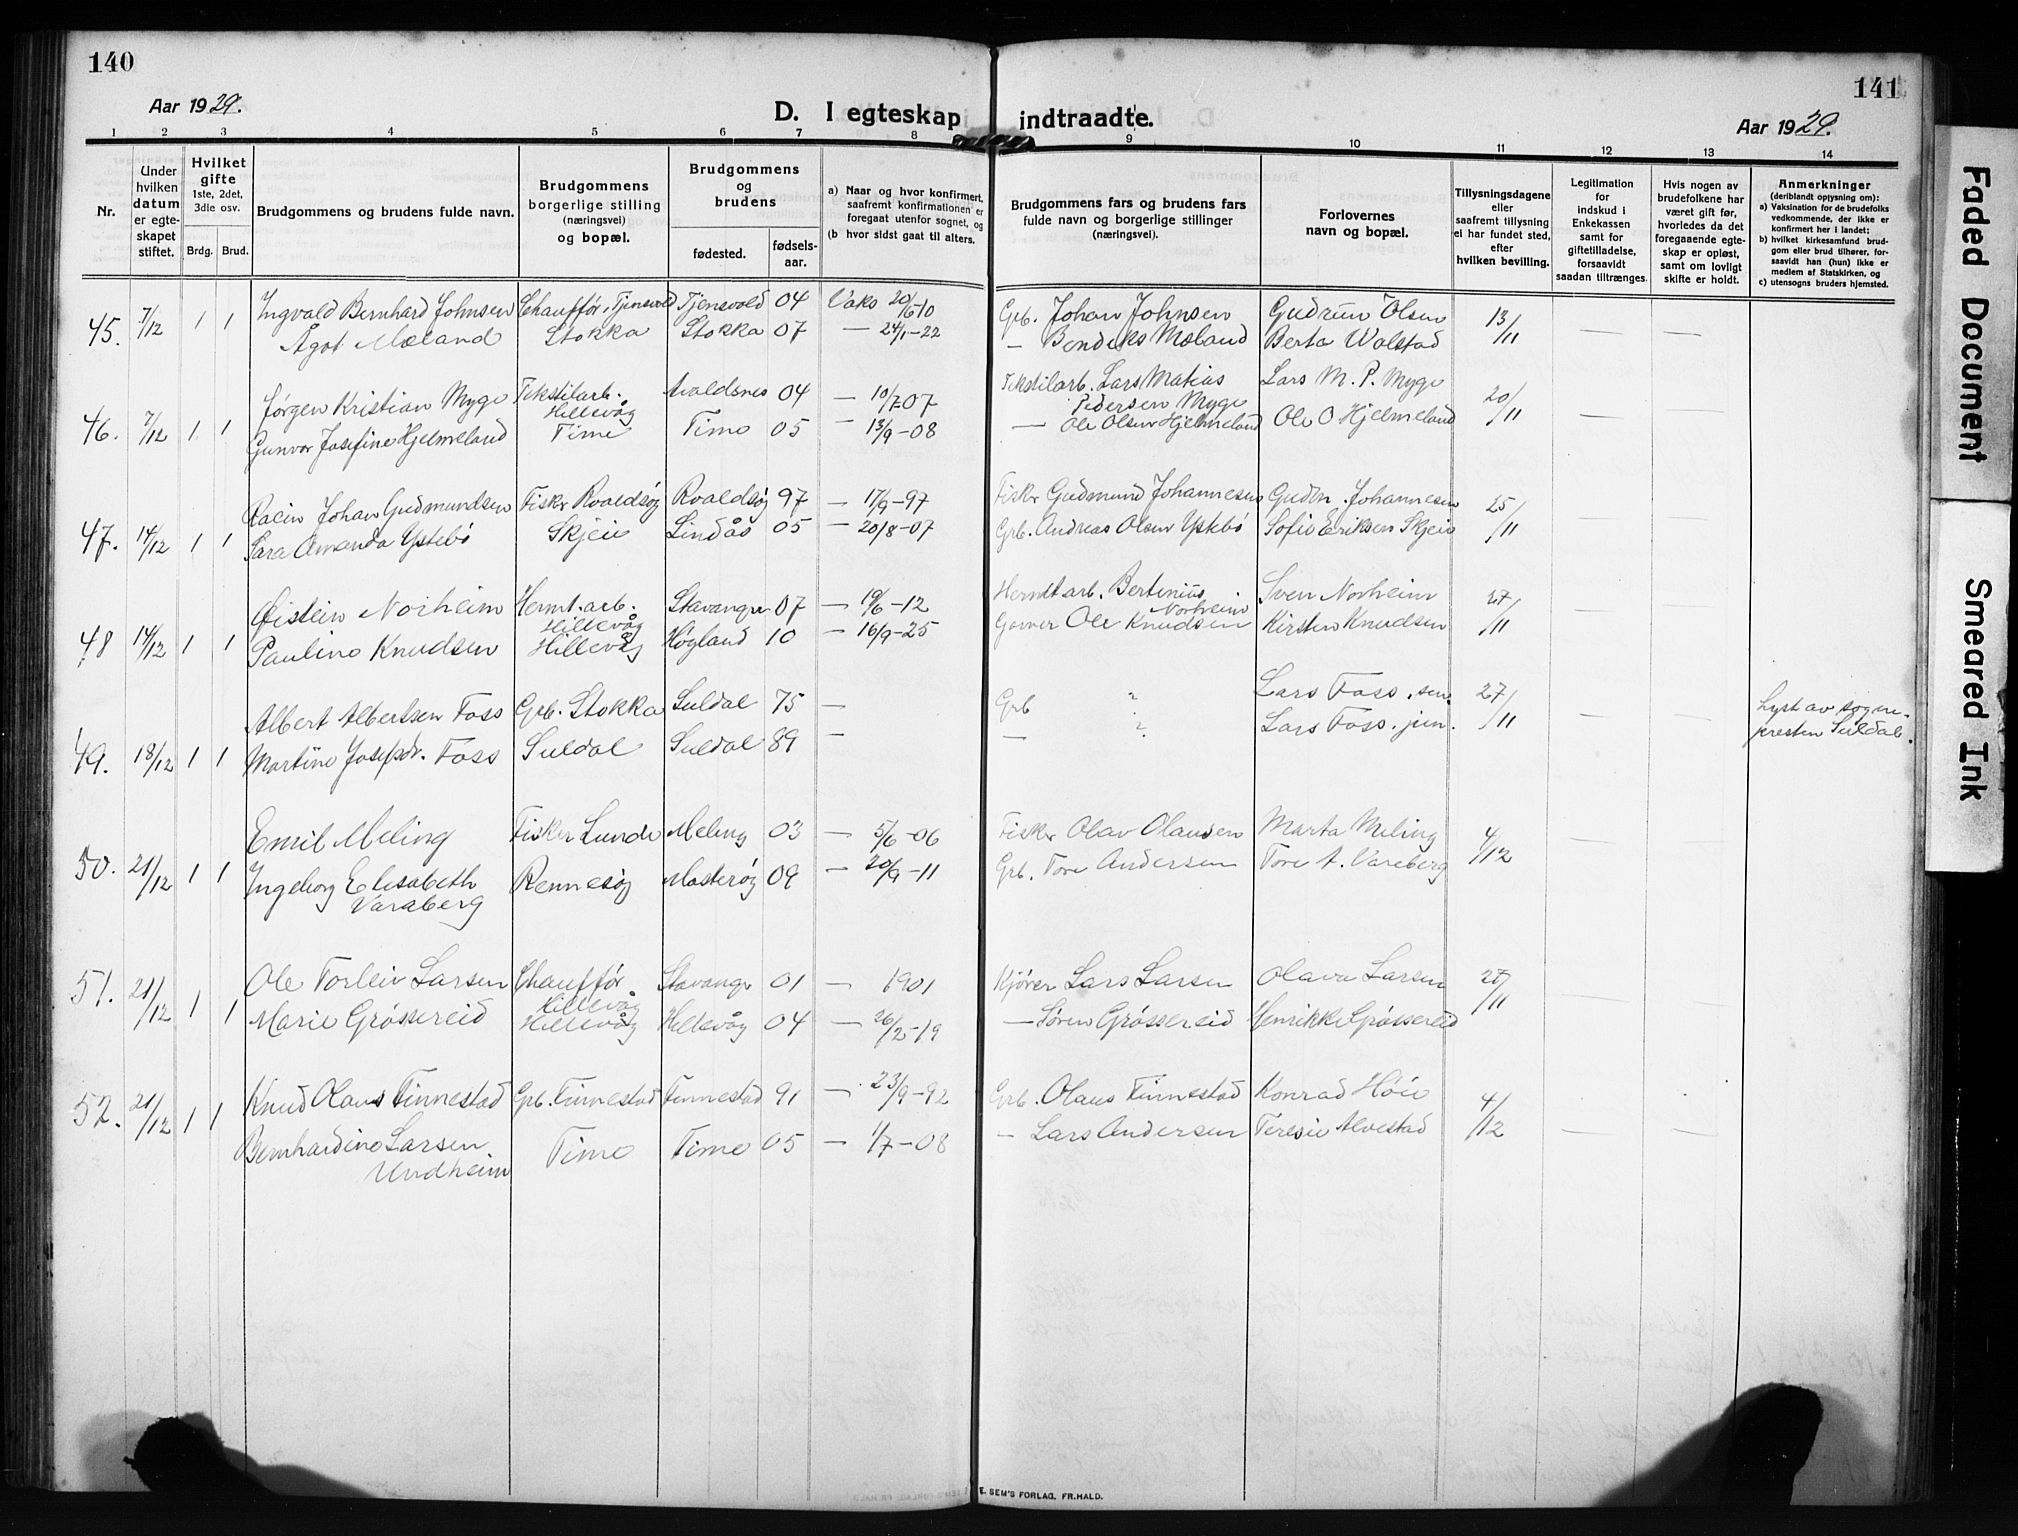 140
Aar 1929.
D. I egteskap indtraadte.
Aar 1929.
141
1 2 3 4 5 6 7 8 9 10 11 12 13 14
Nr.
Under hvilken datum er egteskapet stiftet.
Hvilket gifte 1ste, 2det, 3die osv.
Brdg. Brud.
Brudgommens og brudens fulde navn.
Brudgommens borgerlige stilling (næringsvei) og bopæl.
Brudgommens og brudens
fødested. fødsels-aar.
a) Naar og hvor konfirmert, saafremt konfirmationen er foregaat utenfor sognet, og
(b hvor sidst gaat til alters.
Brudgommens fars og brudens fars fulde navn og borgerlige stillinger (næringsvei).
Forlovernes navn og bopæl.
Tillysningsdagene eller saafremt tillysning ei har fundet sted, efter hvilken bevilling.
Legitimation for indskud i Enkekassen samt for giftetilladelse, forsaavidt saadan tiltrænges.
Hvis nogen av brudefolkene har været gift før, hvorledes da det foregaaende egteskap er opløst, samt om lovligt skifte er holdt.
Anmerkninger (deriblandt oplysning om):
a) Vaksination for de brudefolks vedkommende, der ikke er konfirmert her i landet;
b) hvilket kirkesamfund brudgom eller brud tilhører, forsaavidt han (hun) ikke er medlem af Statskirken, og
c) utensogns bruders hjemsted.
45. 7/12 1 1 Ingvald Bernhard Johnsen Chauffør, Tjensvold Tjensvold 04 Vaks 20/6 10 Grb. Johan Johnsen Gudrun Olsen 13/11 — —
Ågot Mæland Stokka Stokka 07 — 24/1-22 — Bendiks Mæland Berta Walstad
46. 7/12 1 1 Jørgen Kristian Myge Tekstilarb. Hillevåg Avaldsnes 04 — 10/7 07 Tekstilarb. Lars Matias Pedersen Myge Lars M. P. Myge 20/11 — —
Gunvor Josefine Hjelmeland Time Time 05 — 13/9-08 — Ole Olsen Hjelmeland Ole O Hjelmeland
47. 14/12 1 1 Johan Gudmundsen Fisker Roaldsøy Roaldsøy 97 — 17/9-97 Fisker Gudmund Johannesen Gudm. Johannesen 25/11 — —
Sara Amanda Ystebø Skjeie Lindås 05 — 20/8-07 Grb. Andreas Olsen Ystebø Sofie Eriksen Skjeie
48 14/12 1 1 Øistein Norheim Hermt. arb. Hillevåg Stavanger 07 — 19/6-12 Hermt arb. Bertinius Norheim Sven Norheim 27/11 — —
Pauline Knudsen Hillevåg Høgland 10 — 16/9-25 Garver Ole Knudsen Kirsten Knudsen
49. 18/12 1 1 Albert Albertsen Foss Grb. Stokka Suldal 75 — Grb ? Lars Foss, sen. 27/11 — — Lyst av sognepresten Suldal.
Martine Josefsdr. Foss Suldal Suldal 89 — — ? Lars Foss. jun.
50. 21/12 1 1 Emil Meling Fisker Lunde Meling 03 — 5/6-06 Fisker Olav Olausen Marta Meling 4/12 — —
Ingeborg Elisabeth Varaberg Rennesøy Mosterøy 09 — 20/9-11 Grb. Tore Andersen Tore A. Vareberg
51. 21/12 1 1 Ole Torleiv Larsen Chauffør Hillevåg Stavanger 01 — 1901 Kjører Lars Larsen Olava Larsen 27/11 — —
Marie Grøssereid Hillevåg Hillevåg 04 — 26/2-19 — Søren Grøssereid Henrikke Grøssereid
52. 21/12 1 1 Knud Olaus Finnestad Grb. Finnestad Finnestad 91 — 23/9-92 Grb. Olaus Finnestad Konrad Høie 4/12 — —
Bernhardine Larsen Undheim Time Time 05 — 1/7-08 — Lars Andersen Teresie Alvestad
E. SEM'S FORLAG, FR.HALD.
Faded Document
Smeared Ink